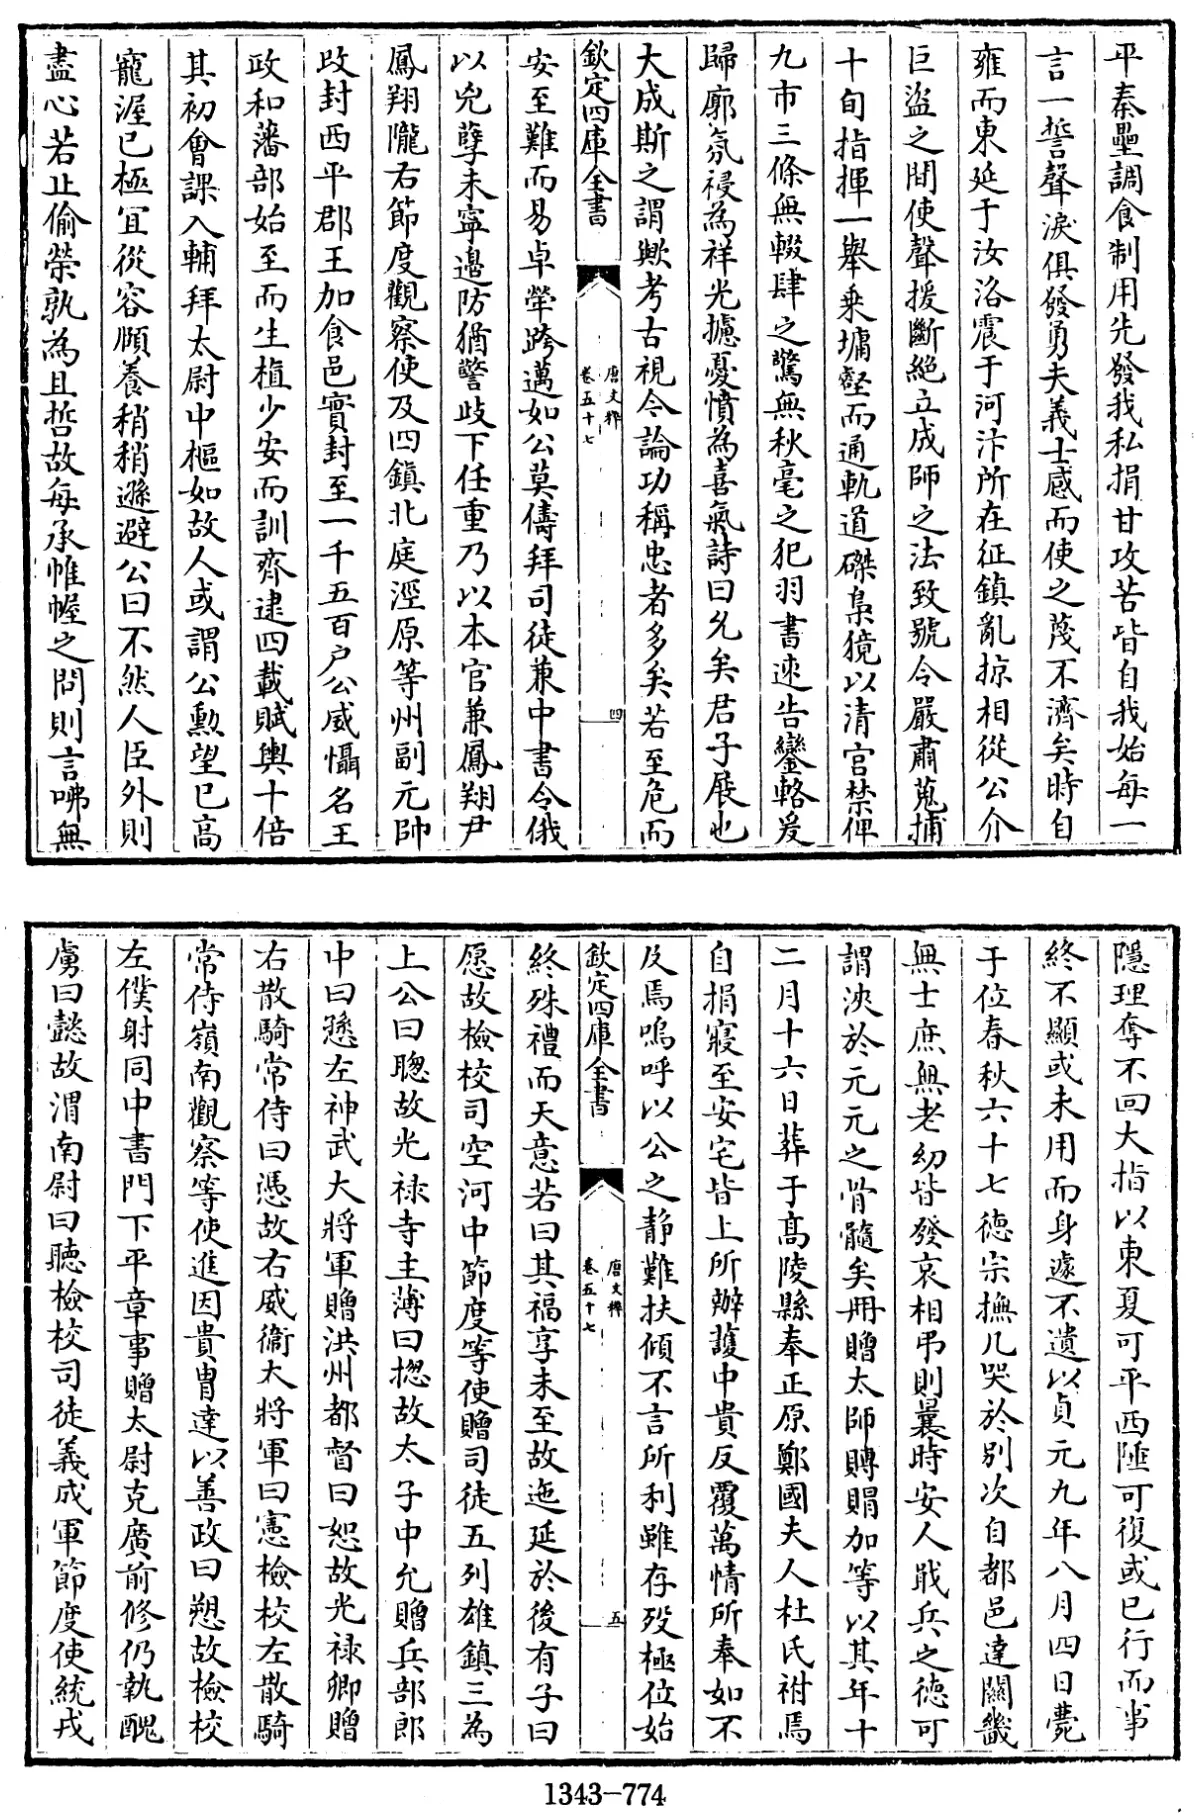 平秦壘調食制用先發我私捐甘攻苦皆自我始每一
言一誓聲淚俱發勇夫義士感而使之蔑不濟矣時自
雍而東延于汝洛震于河汴所在征鎮亂掠相從公介
巨盜之間使聲援斷絶立成師之法致號令嚴肅蒐捕
十旬指揮一舉乗墉壑而通軌道磔梟獍以清宫禁俾
九市三條無輟肆之驚無秋毫之犯羽書速告鑾輅爰
歸廓氛祲為祥光攄憂憤為喜氣詩曰允矣君子展也
大成斯之謂歟考古視今論功稱忠者多矣若至危而
欽定四庫全書 唐文粹 卷五十七 四
安至難而易卓犖跨邁如公莫儔拜司徒兼中書令俄
以兇孽未寧邉防猶警歧下任重乃以本官兼鳳翔尹
鳳翔隴右節度觀察使及四鎮北庭涇原等州副元帥
改封西平郡王加食邑實封至一千五百户公威懾名王
政和藩部始至而生植少安而訓齊逮四載賦輿十倍
其初會課入輔拜太尉中樞如故人或謂公勲望已高
寵渥已極宜從容頤養稍稍遜避公曰不然人臣外則
盡心若止偷榮孰為且哲故每承帷幄之問則言咈無
隱理奪不回大指以東夏可平西陲可復或已行而事
終不顯或未用而身遽不遺以貞元九年八月四日薨
于位春秋六十七徳宗撫几哭於别次自都邑達關畿
無士庶無老幼皆發哀相弔則曩時安人戢兵之徳可
謂浹於元元之骨髓矣冊贈太師賻賵加等以其年十
二月十六日葬于髙陵縣奉正原鄭國夫人杜氏祔焉
自捐寢至安宅皆上所辦護中貴反覆萬情所奉如不
及焉嗚呼以公之静難扶傾不言所利雖存殁極位始
欽定四庫全書 唐文粹 卷五十七 五
終殊禮而天意若曰其福享未至故迤延於後有子曰
愿故檢校司空河中節度等使贈司徒五列雄鎮三為
上公曰聰故光禄寺主薄曰揔故太子中允贈兵部郎
中曰愻左神武大將軍贈洪州都督曰恕故光禄卿贈
右散騎常侍曰憑故右威衛大將軍曰憲檢校左散騎
常侍嶺南觀察等使進因貴胄達以善政曰愬故檢校
左僕射同中書門下平章事贈太尉克廣前修仍執醜
虜曰懿故渭南尉曰聽檢校司徒義成軍節度使統戎
1343-774